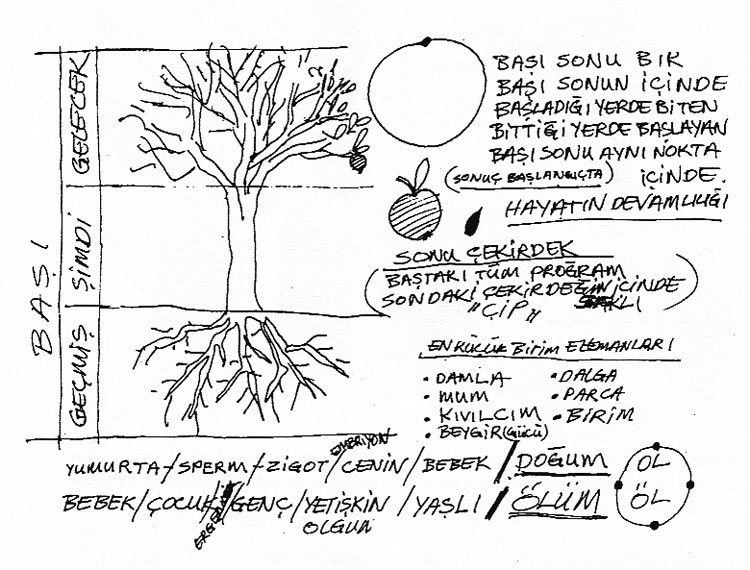 GELECEK
ŞİMDİ
GEÇMİŞ
BAŞI
BAŞI SONU BIR
BAŞI SONUN İÇİNDE
BAŞLADIĞI YERDE BİTEN
BİTTİĞİ YERDE BAŞLAYAN
BAŞI SONU AYNI NOKTA
(SONUÇ BAŞLANGIÇTA) İÇİNDE.
HAYATIN DEVAMLILIĞI
SONU ÇEKİRDEK
(BAŞTAKI TÜM PROGRAM
SONDAKİ ÇEKİRDEĞİN İÇİNDE
"ÇİP" SAKLI)
EN KÜÇÜK BİRİM ELEMANLARI
• DAMLA • DALGA
• MUM • PARCA
• KIVILCIM • BİRİM
• BEYGİR (GÜCÜ)
EMBRİYON
YUMURTA / SPERM / ZİGOT / CENİN / BEBEK / DOĞUM
OL
BEBEK / ÇOCUK / GENÇ / YETİŞKİN / YAŞLI / ÖLÜM
ÖL
OLGUN